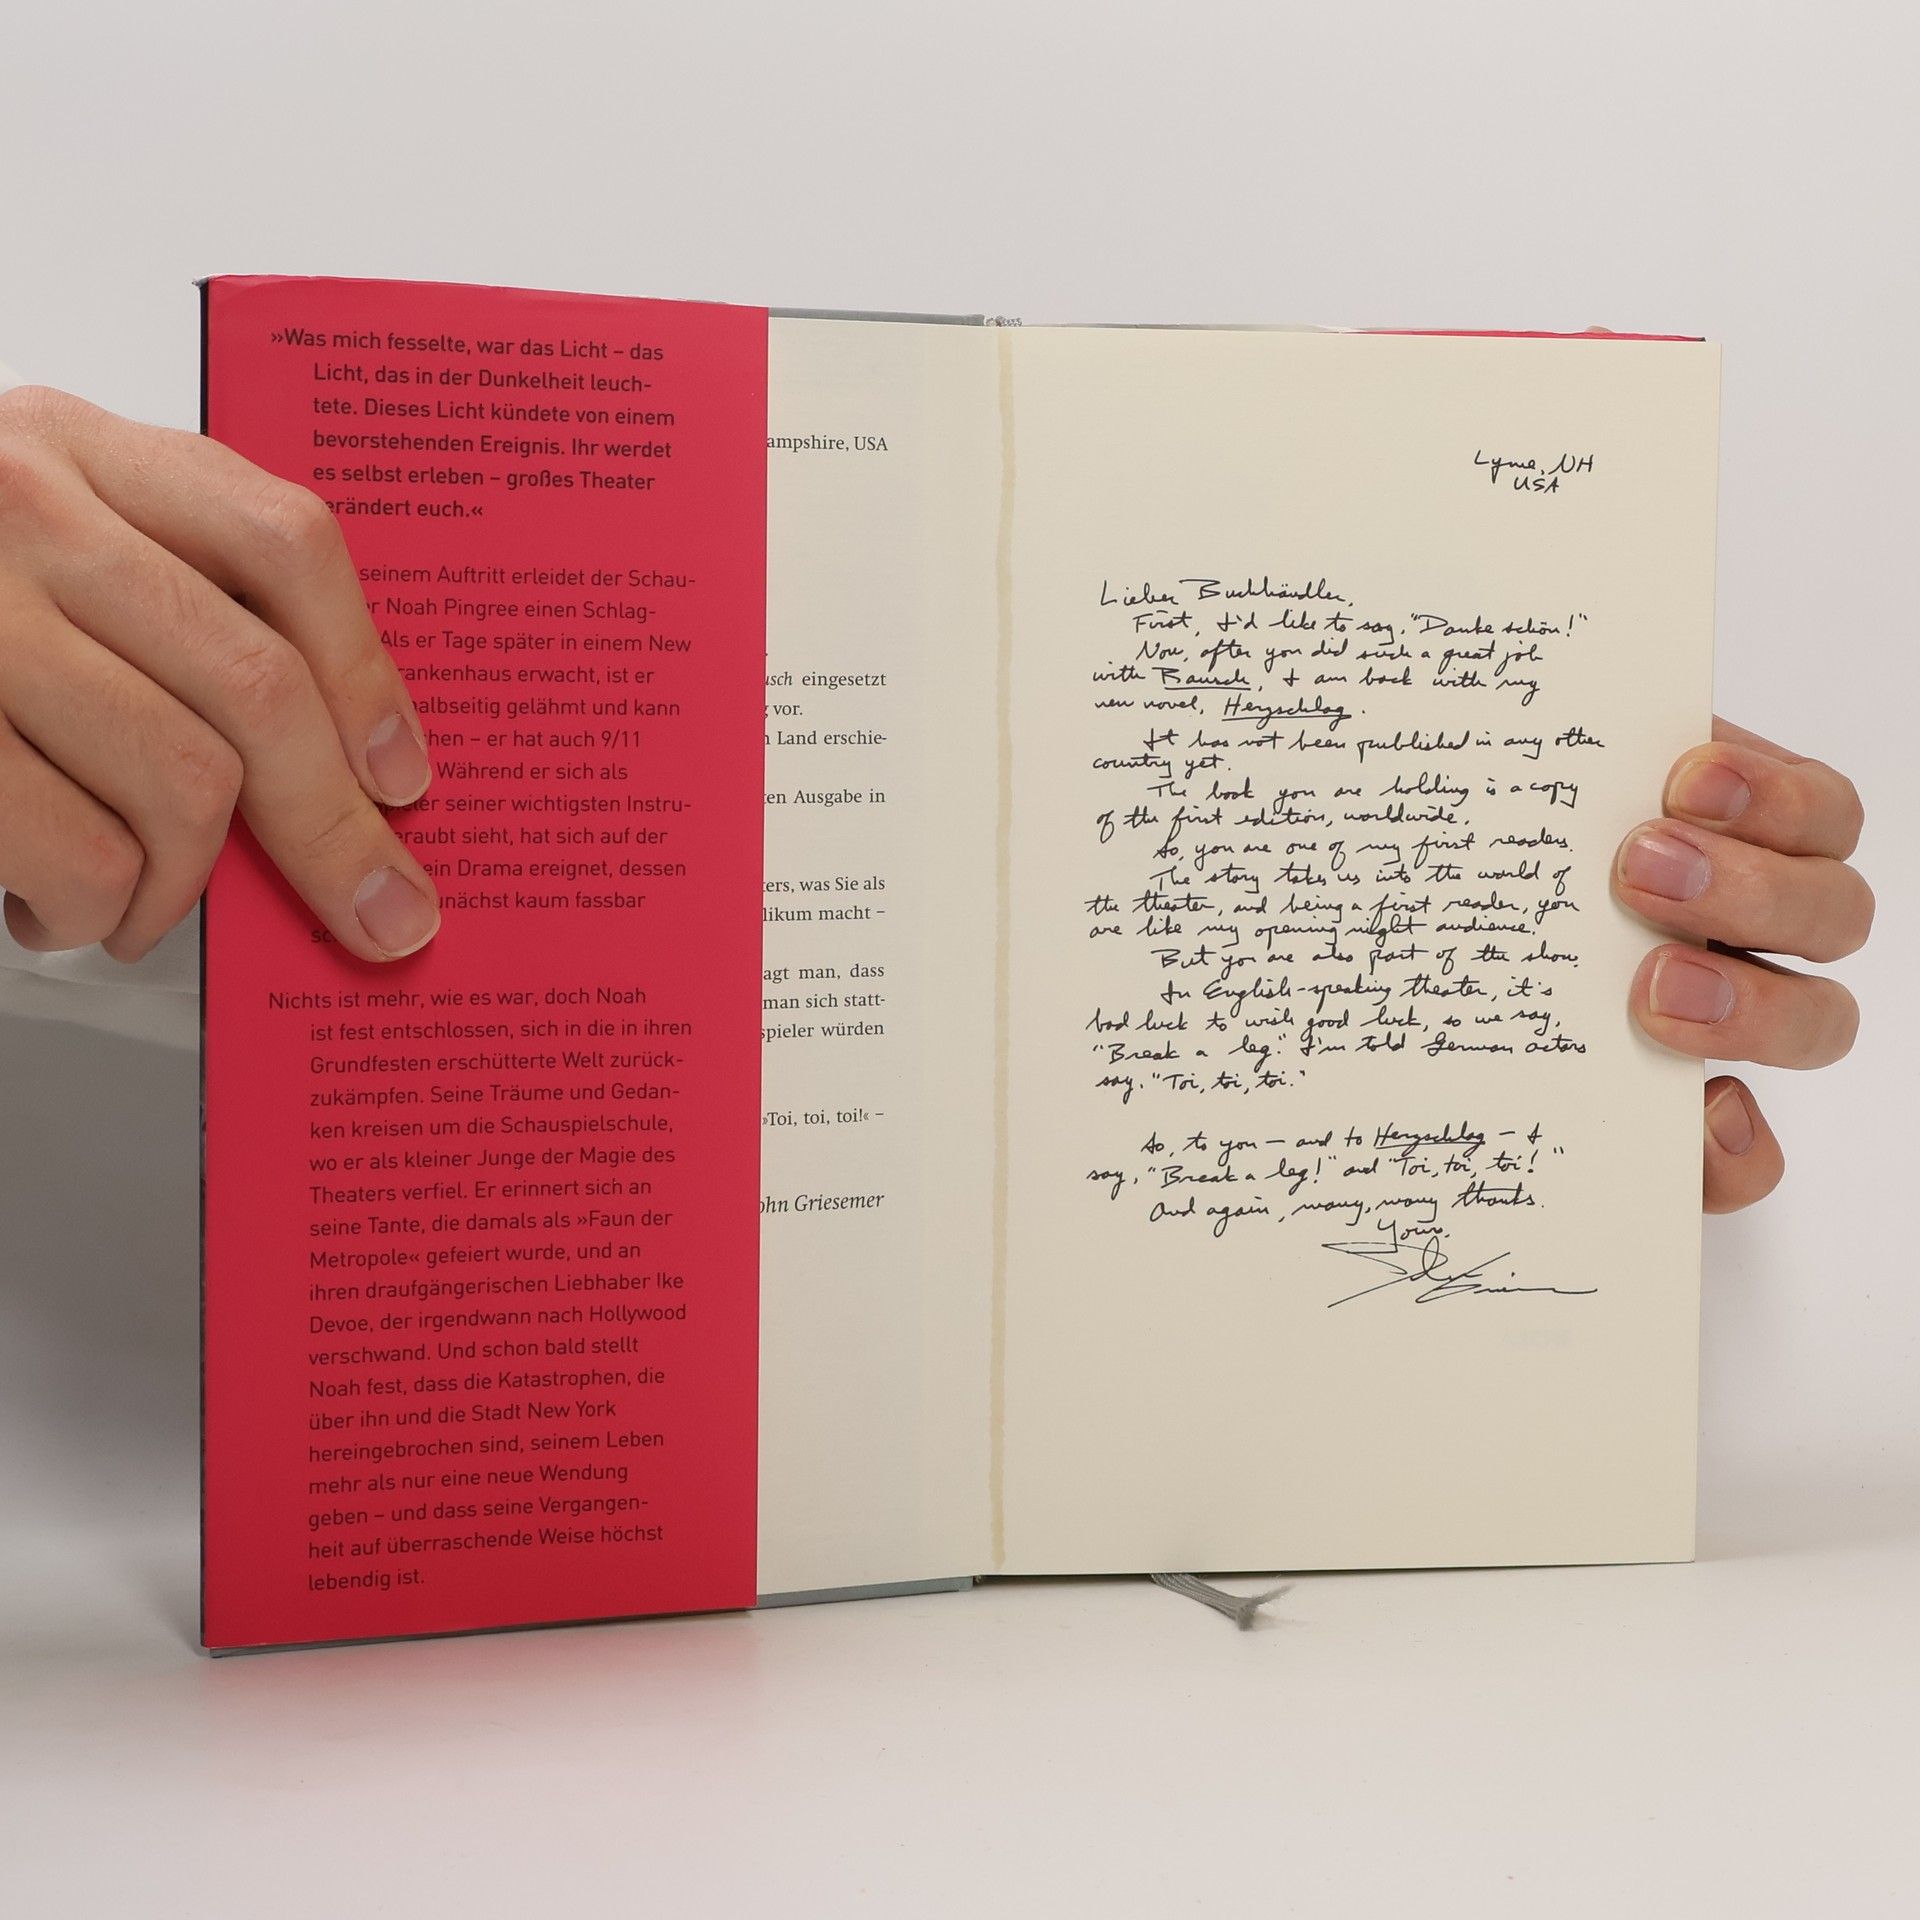 »Was mich fesselte, war das Licht – das
Licht, das in der Dunkelheit leuch-
tete. Dieses Licht kündete von einem
bevorstehenden Ereignis. Ihr werdet
es selbst erleben – großes Theater
erändert euch.«
seinem Auftritt erleidet der Schau-
er Noah Pingree einen Schlag-
Als er Tage später in einem New
rankenhaus erwacht, ist er
halbseitig gelähmt und kann
chen – er hat auch 9/11
Während er sich als
pieler seiner wichtigsten Instru-
eraubt sieht, hat sich auf der
ein Drama ereignet, dessen
unächst kaum fassbar
sc
Nichts ist mehr, wie es war, doch Noah
ist fest entschlossen, sich in die in ihren
Grundfesten erschütterte Welt zurück-
zukämpfen. Seine Träume und Gedan-
ken kreisen um die Schauspielschule,
wo er als kleiner Junge der Magie des
Theaters verfiel. Er erinnert sich an
seine Tante, die damals als »Faun der
Metropole« gefeiert wurde, und an
ihren draufgängerischen Liebhaber Ike
Devoe, der irgendwann nach Hollywood
verschwand. Und schon bald stellt
Noah fest, dass die Katastrophen, die
über ihn und die Stadt New York
hereingebrochen sind, seinem Leben
mehr als nur eine neue Wendung
geben – und dass seine Vergangen-
heit auf überraschende Weise höchst
lebendig ist.
ampshire, USA
usch eingesetzt
g vor.
n Land erschie-
ten Ausgabe in
ters, was Sie als
likum macht –
agt man, dass
man sich statt-
spieler würden
»Toi, toi, toi!« –
ohn Griesemer
Lyme, NH
USA
Lieber Buchhändler,
First, I'd like to say, "Danke schön!"
Now, after you did such a great job
with Rausch, I am back with my
new novel, Herzschlag.
It has not been published in any other
country yet.
The book you are holding is a copy
of the first edition, worldwide.
So, you are one of my first readers.
The story takes us into the world of
the theater, and being a first reader, you
are like my opening night audience.
But you are also part of the show.
In English-speaking theater, it's
bad luck to wish good luck, so we say,
"Break a leg." I'm told German actors
say, "Toi, toi, toi."
So, to you – and to Herzschlag – I
say, "Break a leg!" and "Toi, toi, toi!"
And again, many, many thanks.
Yours,